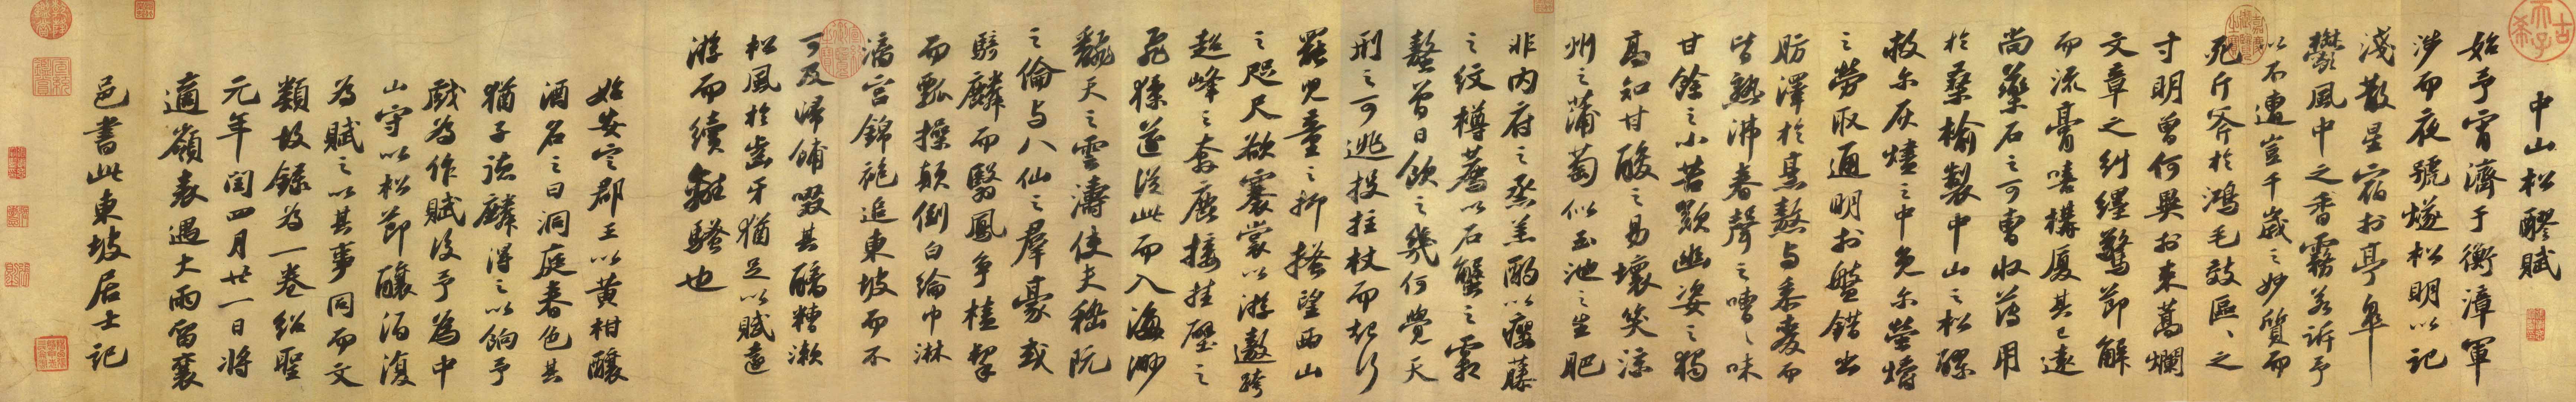 中山松醪賦
始予宵濟于衡漳軍
涉而夜號燧松明以記
淺散星宿於亭皋
鬱風中之香霧若訴予
以不遭豈千歲之妙質而
死斤斧於鴻毛效區區之
寸明曾何異於束蒿爛
文章之糾纆驚節解
而流膏嘻構厦其已遠
尚藥石之可曹收薄用
於桑榆製中山之松醪
救尔灰燼之中免尔螢爝
之勞取通明於盤錯出
肪澤於烹熬与黍麥而
皆熟沸舂聲之嘈嘈味
甘餘之小苦歎幽姿之獨
高知甘酸之易壞笑涼
州之蒲萄似玉池之生肥
非内府之烝羔酌以癭藤
之紋樽薦以石蟹之霜
螯曾日飲之幾何覺天
刑之可逃投拄杖而起行
罷兒童之抑搔望西山
之咫尺欲褰裳以游遨跨
超峰之奔鹿接挂壁之
飛猱遂從此而入海渺
飜天之雲濤使夫嵇阮
之倫与八仙之羣豪或
騎麟而翳鳳爭榼挈
而瓢操顛倒白綸巾淋
漓宮錦袍追東坡而不
可及歸餔歠其醨糟漱
松風於齒牙猶足以賦遠
游而續離騷也
始安定郡王以黄柑釀
酒名之曰洞庭春色其
猶子德麟得之以餉予
戲為作賦後予為中
山守以松節釀酒復
為賦之以其事同而文
類故錄為一卷紹聖
元年閏四月廿一日將
適嶺表遇大雨留襄
邑書此東坡居士記
古希天子